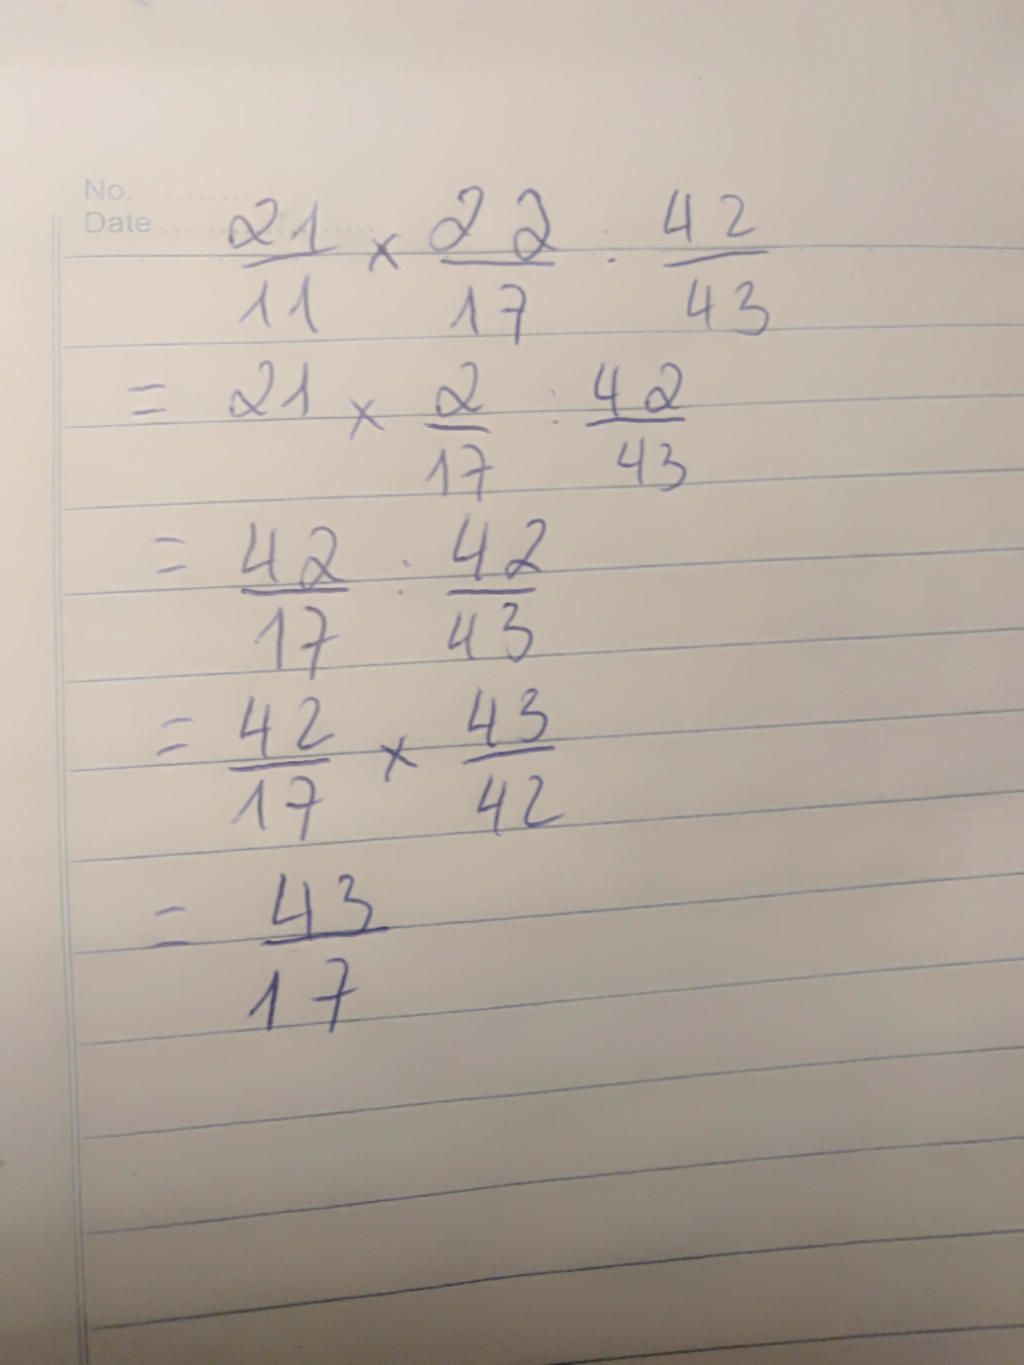 No.
Date
21/11 × 22/17 : 42/43
= 21 × 2/17 : 42/43
= 42/17 : 42/43
= 42/17 × 43/42
= 43/17